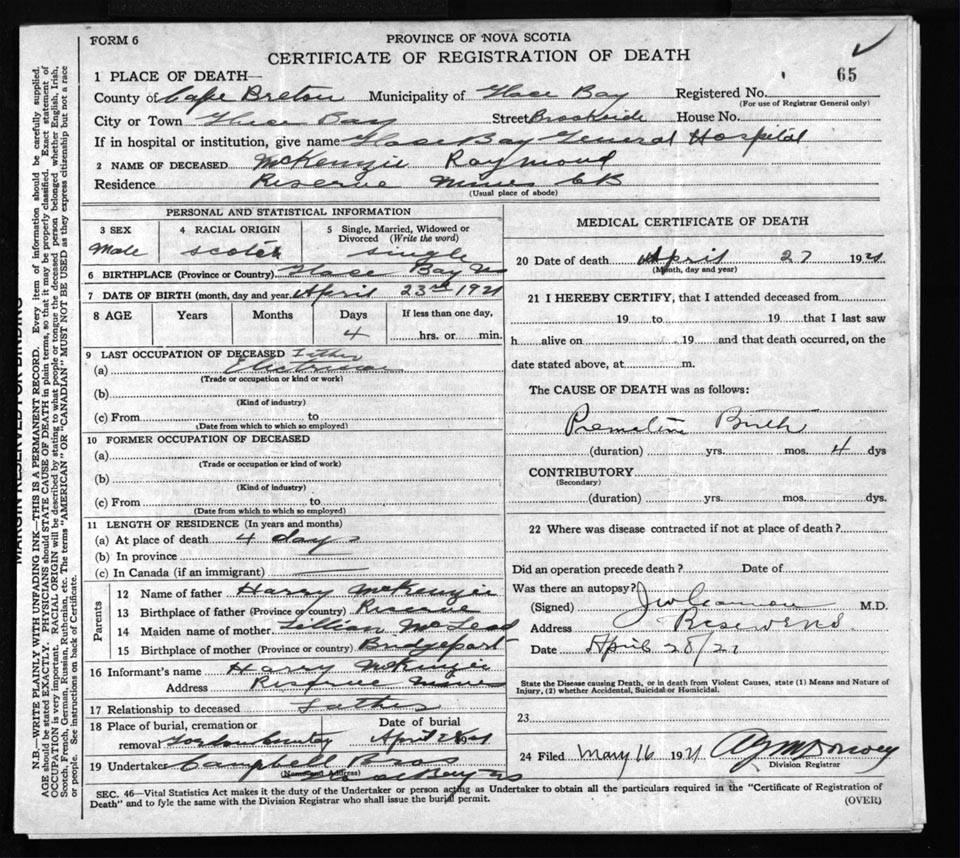 FORM 6
PROVINCE OF NOVA SCOTIA
CERTIFICATE OF REGISTRATION OF DEATH
65
1 PLACE OF DEATH—
County of Cape Breton Municipality of Glace Bay Registered No.
(For use of Registrar General only)
City or Town Glace Bay Street Brookside House No.
If in hospital or institution, give name Glace Bay General Hospital
2 NAME OF DECEASED McKenzie Raymond
Residence Reserve Mines CB
(Usual place of abode)
PERSONAL AND STATISTICAL INFORMATION
3 SEX Male
4 RACIAL ORIGIN Scotch
5 Single, Married, Widowed or Divorced (Write the word) Single
6 BIRTHPLACE (Province or Country) Glace Bay NS
7 DATE OF BIRTH (month, day and year) April 23rd 1921
8 AGE Years Months Days If less than one day,
4 hrs. or min.
9 LAST OCCUPATION OF DECEASED Father
(a) Electrician
(Trade or occupation or kind or work)
(b)
(Kind of industry)
(c) From to
(Date from which to which so employed)
10 FORMER OCCUPATION OF DECEASED
(a)
(Trade or occupation or kind of work)
(b)
(Kind of industry)
(c) From to
(Date from which to which so employed)
11 LENGTH OF RESIDENCE (In years and months)
(a) At place of death 4 days
(b) In province
(c) In Canada (if an immigrant)
Parents
12 Name of father Harry McKenzie
13 Birthplace of father (Province or country) Reserve
14 Maiden name of mother Lillian McLeod
15 Birthplace of mother (Province or country) Bridgeport
16 Informant's name Harry McKenzie
Address Reserve Mines
17 Relationship to deceased Father
18 Place of burial, cremation or removal
Date of burial April 28 1921
19 Undertaker Campbell Bros
(Name and Address) Glace Bay NS
MEDICAL CERTIFICATE OF DEATH
20 Date of death April 27 1921
(Month, day and year)
21 I HEREBY CERTIFY, that I attended deceased from
19 to 19 that I last saw
h alive on 19 and that death occurred, on the
date stated above, at m.
The CAUSE OF DEATH was as follows:
Premature Birth
(duration) yrs. mos. 4 dys
CONTRIBUTORY
(Secondary)
(duration) yrs. mos. dys.
22 Where was disease contracted if not at place of death?
Did an operation precede death? Date of
Was there an autopsy?
(Signed) M.D.
Address
Date April 28/21
State the Disease causing Death, or in death from Violent Causes, state (1) Means and Nature of
Injury, (2) whether Accidental, Suicidal or Homicidal.
23
24 Filed May 16 1921
Division Registrar
SEC. 46—Vital Statistics Act makes it the duty of the Undertaker or person acting as Undertaker to obtain all the particulars required in the "Certificate of Registration of
Death" and to fyle the same with the Division Registrar who shall issue the burial permit.
(OVER)
MARGIN RESERVED FOR BINDING
N.B.—WRITE PLAINLY WITH UNFADING INK—THIS IS A PERMANENT RECORD. Every item of information should be carefully supplied.
AGE should be stated EXACTLY. PHYSICIANS should STATE CAUSE OF DEATH in plain terms, so that it may be properly classified. Exact statement of
OCCUPATION is very important. RACIAL ORIGIN will be described by stating to what people or tongue the deceased person belonged whether English, Irish,
Scotch, French, German, Russian, Ruthenian, etc. The terms "AMERICAN" OR "CANADIAN" MUST NOT BE USED as they express citizenship but not a race
or people. See instructions on back of Certificate.